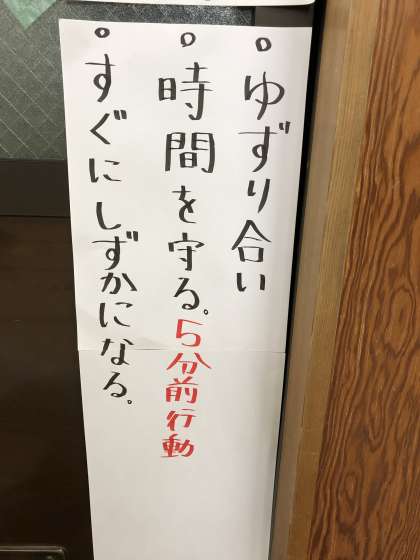 ・ゆずり合い
・時間を守る。5分前行動
・すぐにしずかになる。